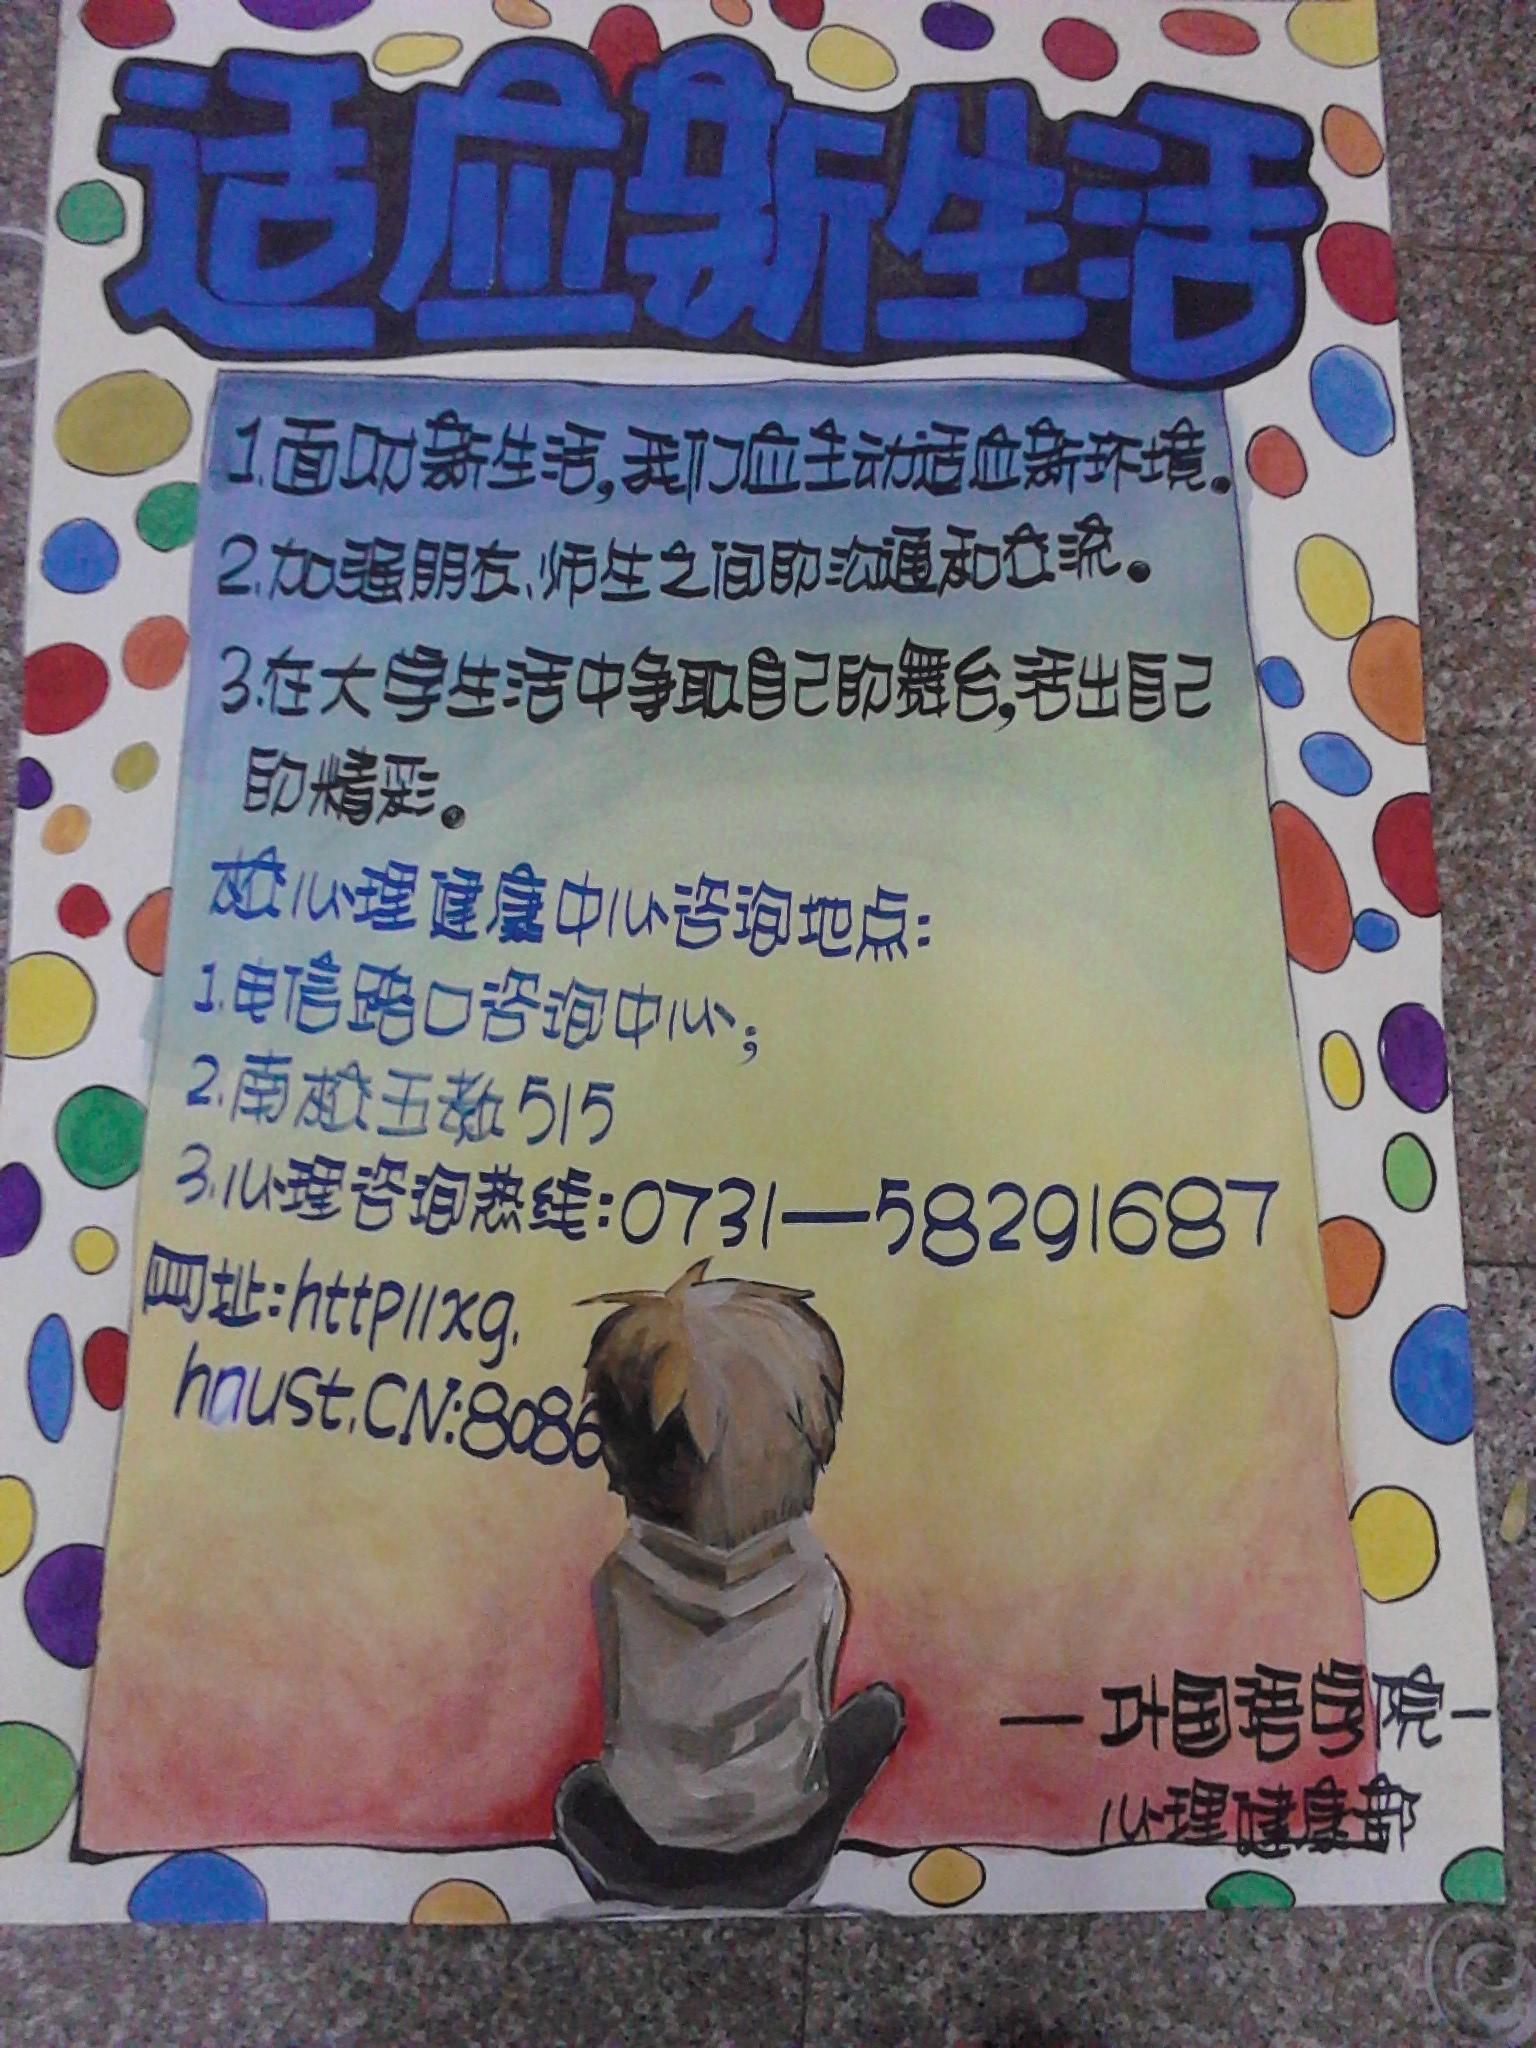 适应新生活
1.面对新生活,我们应主动适应新环境。
2.加强朋友、师生之间的沟通和交流。
3.在大学生活中争取自己的舞台,活出自己
的精彩。
校心理健康中心咨询地点:
1.电信路口咨询中心;
2.南校五教515
3.心理咨询热线:0731—58291687
网址:http11xg.
hnust.CN:8086
—外国语学院—
心理健康部